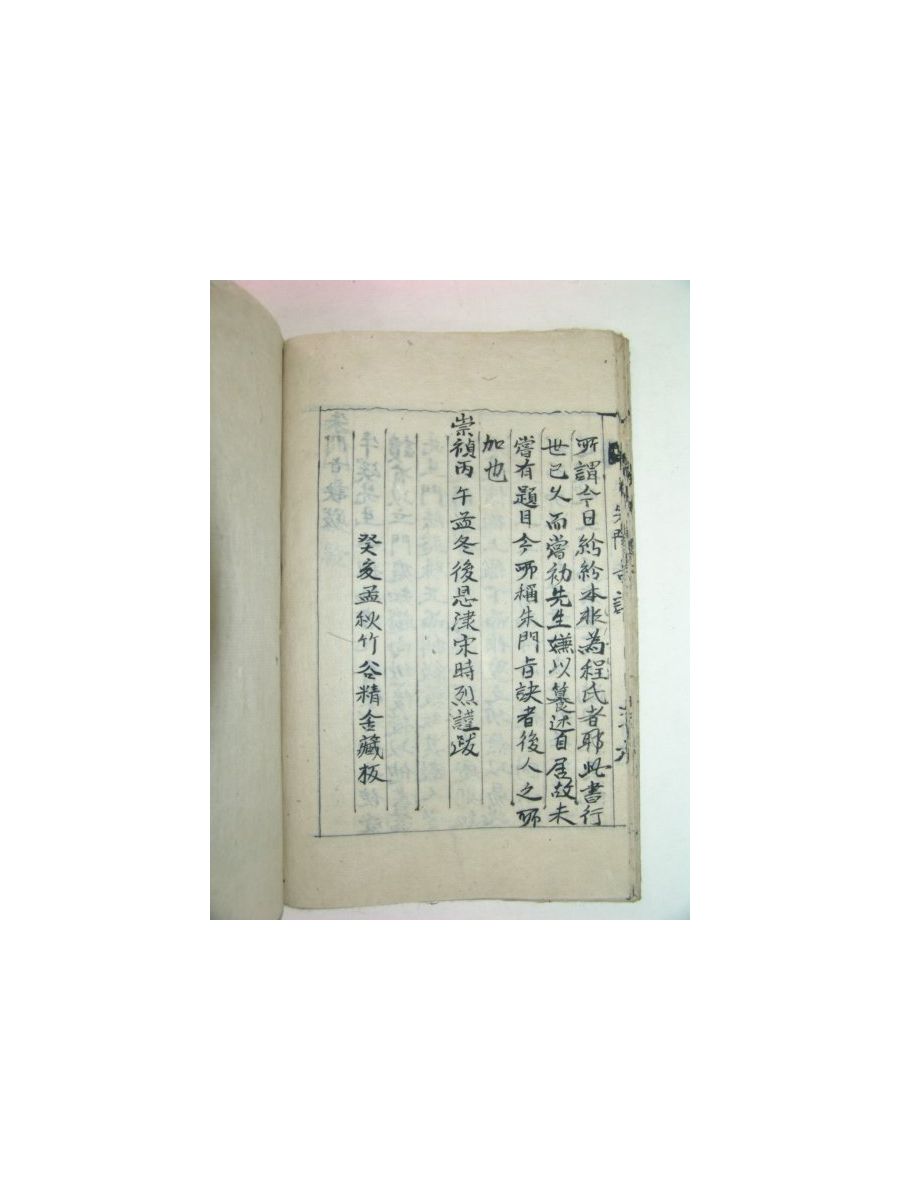 所謂今日紛紛本非為程氏者耶此書行
世已久而當初先生嫌以纂述自居故未
嘗有題目今所稱朱門旨訣者後人之所
加也
崇禎丙午孟冬後恩津宋時烈謹跋
癸亥孟秋竹谷精舍藏板
朱門旨訣